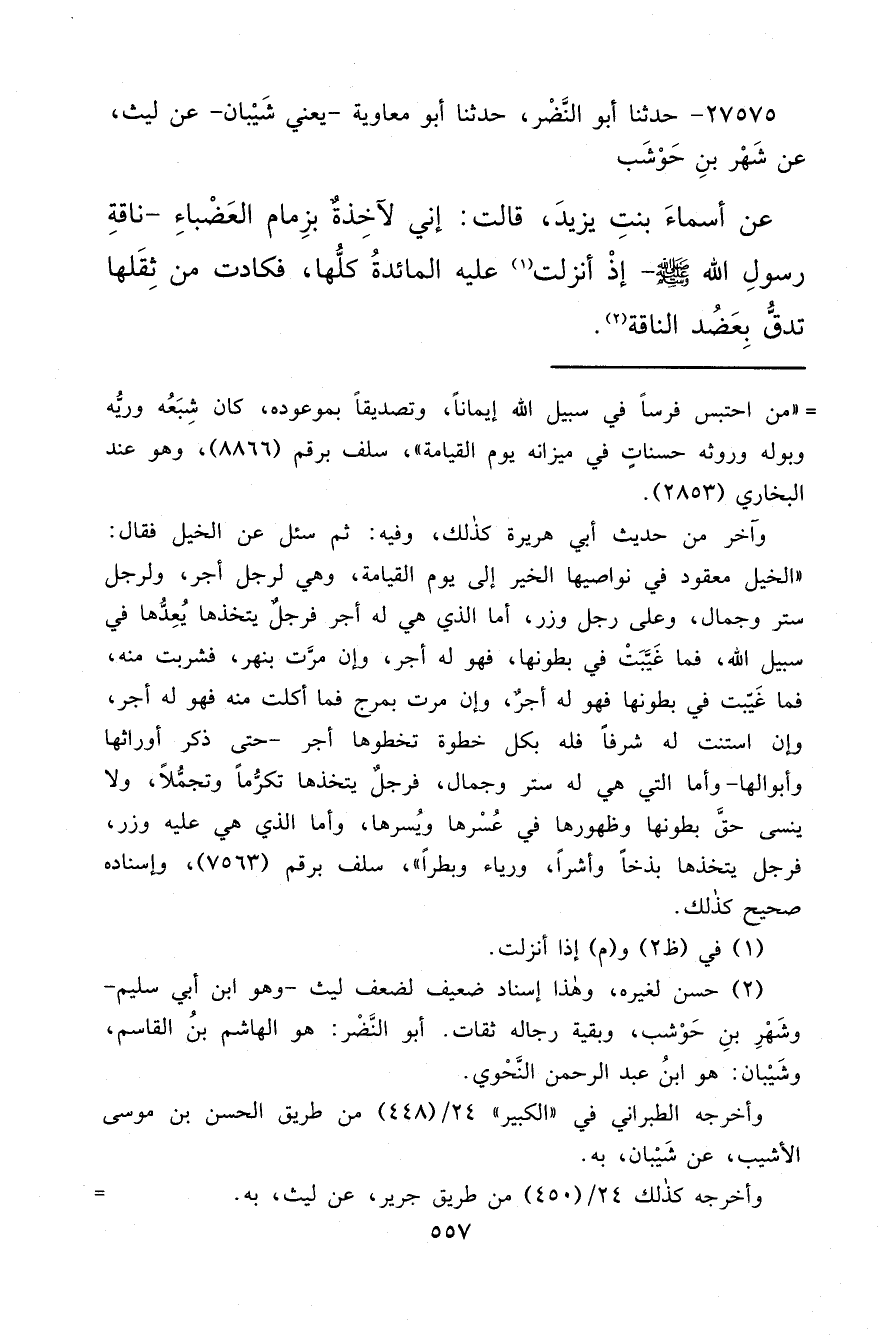 ٢٧٥٧٥- حدثنا أبو النَّضْر، حدثنا أبو معاوية -يعني شَيْبان- عن ليث،
عن شَهْر بنِ حَوْشَب
عن أسماءَ بنتِ يزيدَ، قالت: إني لآخِذةٌ بزِمام العَضْباءِ -ناقةِ
رسولِ الله ﷺ- إذْ أنزلت(١) عليه المائدةُ كلُّها، فكادت من ثِقَلها
تدقُّ بِعَضُد الناقة(٢).
= «من احتبس فرساً في سبيل الله إيماناً، وتصديقاً بموعوده، كان شِبَعُه وريُّه
وبوله وروثه حسناتٍ في ميزانه يوم القيامة»، سلف برقم (٨٨٦٦)، وهو عند
البخاري (٢٨٥٣).
وآخر من حديث أبي هريرة كذٰلك، وفيه: ثم سئل عن الخيل فقال:
«الخيل معقود في نواصيها الخير إلى يوم القيامة، وهي لرجل أجر، ولرجل
ستر وجمال، وعلى رجل وزر، أما الذي هي له أجر فرجلٌ يتخذها يُعِدُّها في
سبيل الله، فما غَيَّبَتْ في بطونها، فهو له أجر، وإن مرَّت بنهر، فشربت منه،
فما غَيّبت في بطونها فهو له أجرٌ، وإن مرت بمرج فما أكلت منه فهو له أجر،
وإن استنت له شرفاً فله بكل خطوة تخطوها أجر -حتى ذكر أوراثها
وأبوالها- وأما التي هي له ستر وجمال، فرجلٌ يتخذها تكرُّماً وتجمُّلاً، ولا
ينسى حقَّ بطونها وظهورها في عُسْرها ويُسرها، وأما الذي هي عليه وزر،
فرجل يتخذها بذخاً وأشراً، ورياء وبطراً»، سلف برقم (٧٥٦٣)، وإسناده
صحيح كذٰلك.
(١) في (ظ٢) و(م) إذا أنزلت.
(٢) حسن لغيره، وهٰذا إسناد ضعيف لضعف ليث -وهو ابن أبي سليم-
وشَهْرِ بنِ حَوْشب، وبقية رجاله ثقات. أبو النَّضْر: هو الهاشم بنُ القاسم،
وشَيْبان: هو ابنُ عبد الرحمن النَّحْوي.
وأخرجه الطبراني في «الكبير» ٢٤/(٤٤٨) من طريق الحسن بن موسى
الأشيب، عن شَيْبان، به.
وأخرجه كذٰلك ٢٤/(٤٥٠) من طريق جرير، عن ليث، به. =
٥٥٧